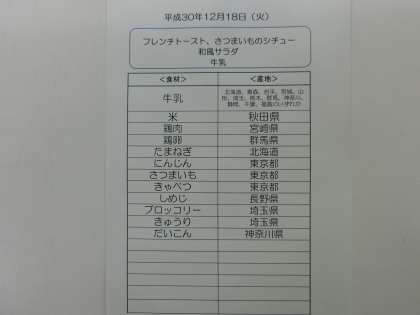 平成30年12月18日（火）
フレンチトースト、さつまいものシチュー
和風サラダ
牛乳
＜食材＞ ＜産地＞
牛乳 北海道、青森、岩手、宮城、山
形、埼玉、栃木、群馬、神奈川、
静岡、千葉、福島のいずれか
米 秋田県
鶏肉 宮崎県
鶏卵 群馬県
たまねぎ 北海道
にんじん 東京都
さつまいも 東京都
きゃべつ 東京都
しめじ 長野県
ブロッコリー 埼玉県
きゅうり 埼玉県
だいこん 神奈川県